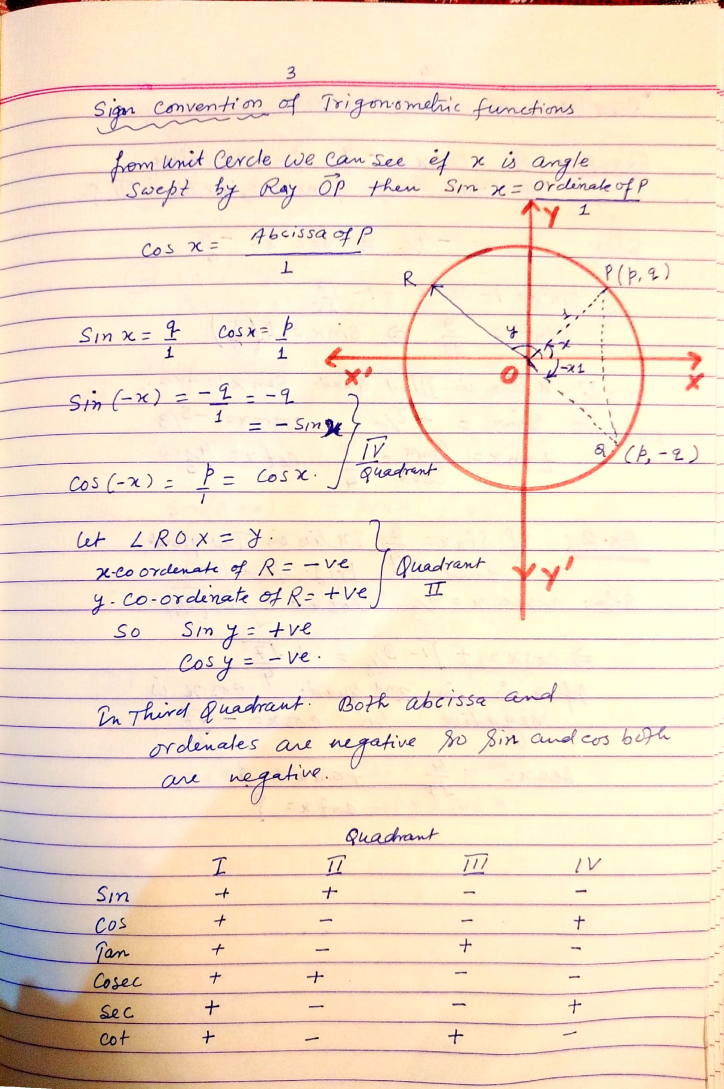 3
Sign Convention of Trigonometric functions
from Unit Cercle We Can See if x is angle
Swept by Ray OP then Sin x = ordinate of P / 1
Cos x = Abcissa of P / 1
Sin x = q/1 Cos x = p/1
Sin (-x) = -q/1 = -q
= - Sin x
Cos (-x) = p/1 = Cos x.
IV Quadrant
Y
R
P (p, q)
1
y
x
-x1
X'
O
X
Q (p, -q)
Y'
Let ∠ROX = y.
x-coordenate of R = -ve
y. Co-ordinate of R = +ve
Quadrant II
So Sin y = +ve
Cos y = -ve.
In Third Quadrant. Both abcissa and
ordenates are negative So Sin and cos both
are negative.
Quadrant
I II III IV
Sin + + - -
Cos + - - +
Tan + - + -
Cosec + + - -
Sec + - - +
Cot + - + -